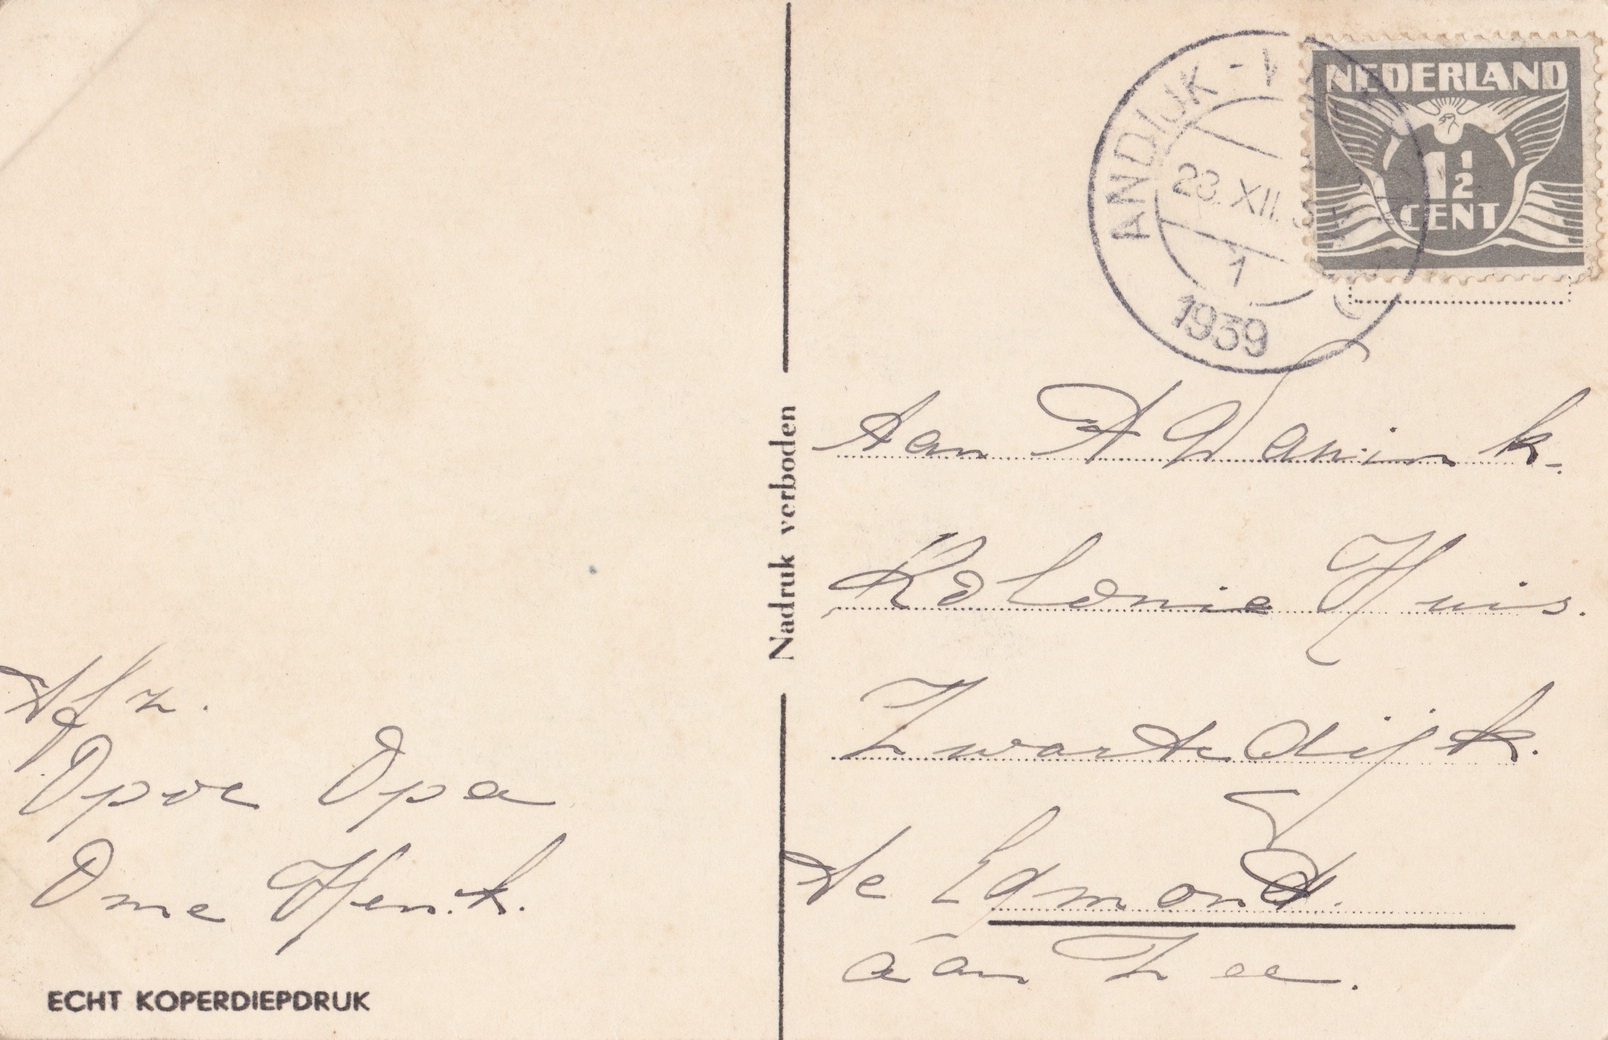 Afz.
Opoe Opa
Ome Henk.
ECHT KOPERDIEPDRUK
Nadruk verboden
ANDIJK -
23.XII.3
1
1939
NEDERLAND
1½
CENT
Aan A
Kolonie Huis.
Zwartedijk.
te Egmond.
aan Zee.